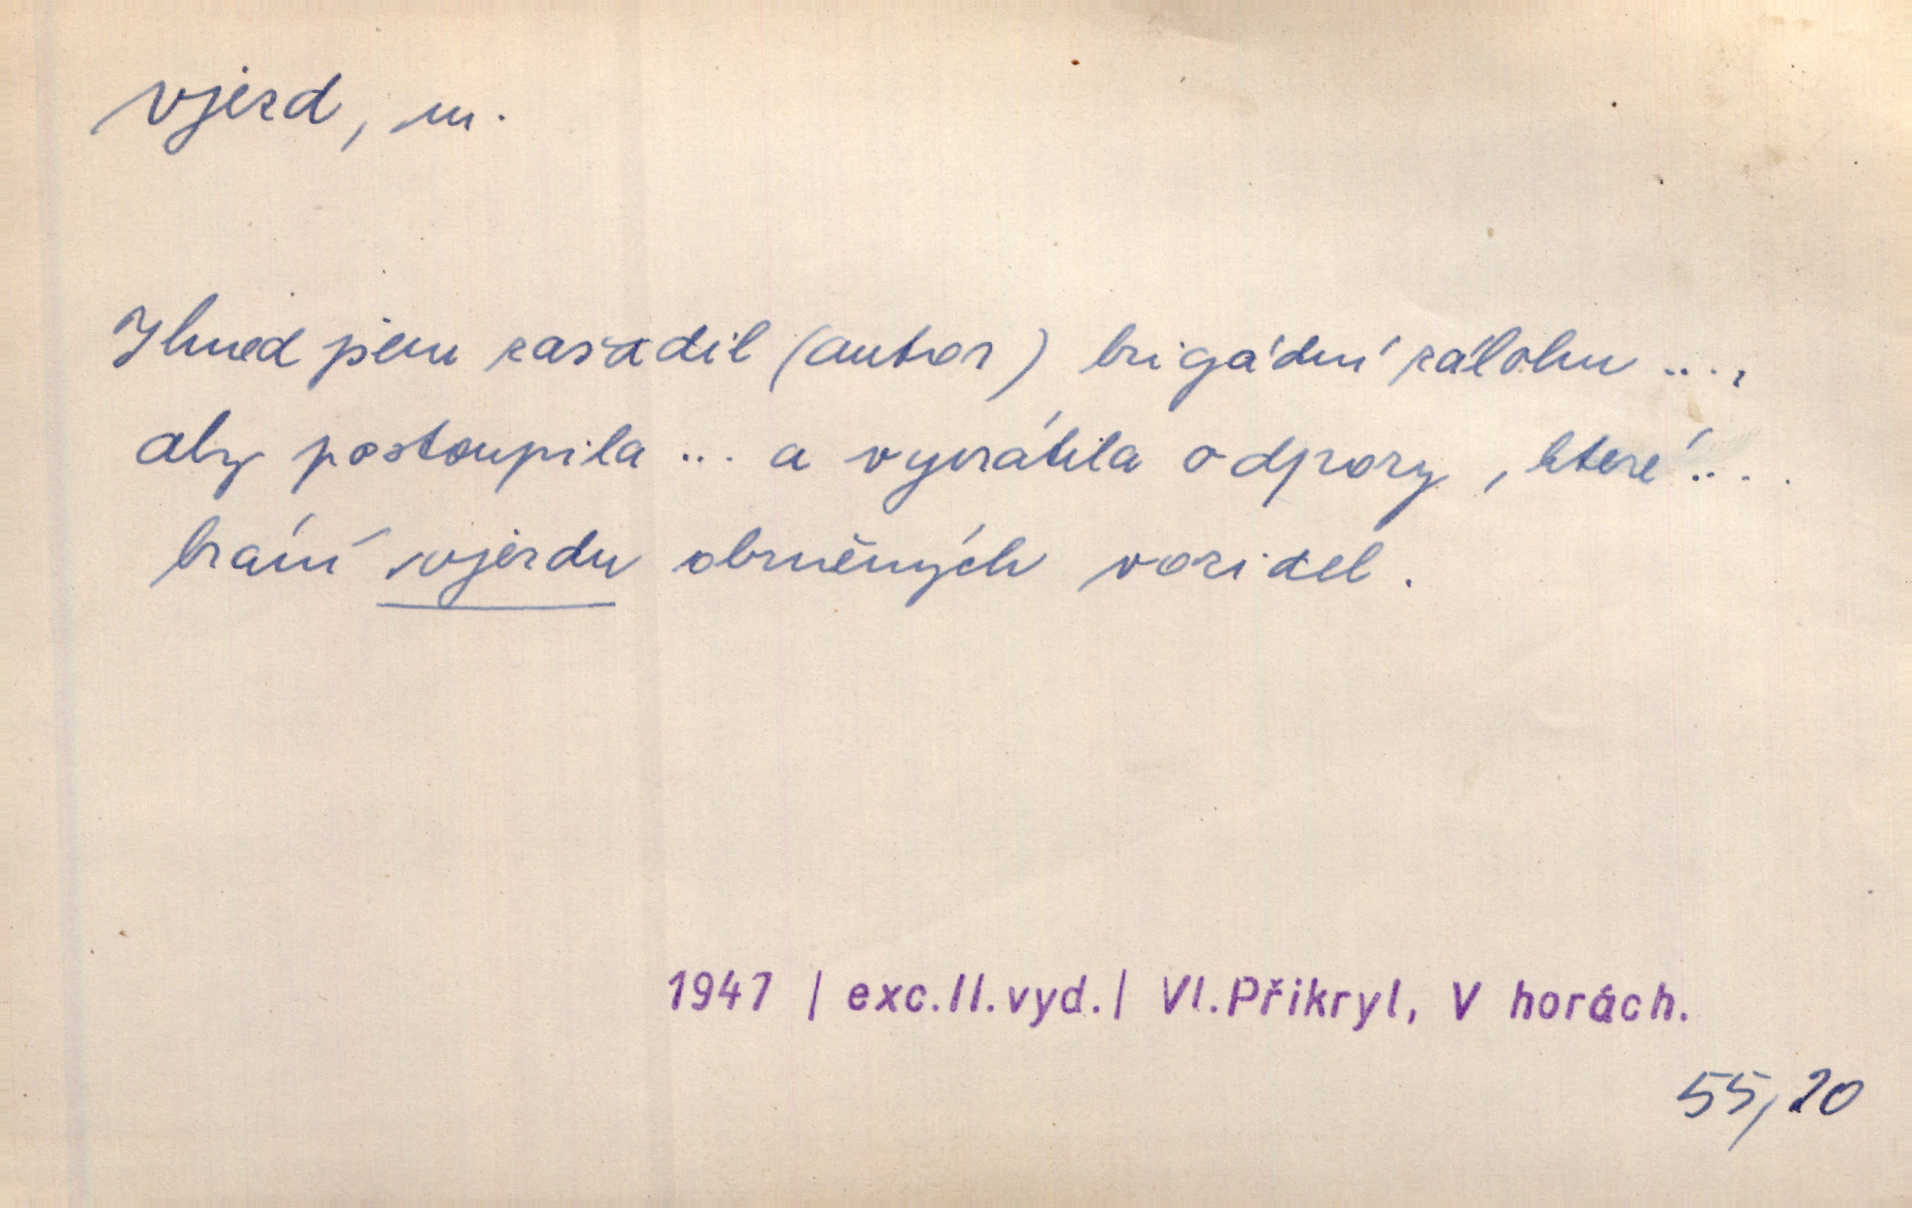 vjezd, m.
Ihned jsem zasadil (autor) brigádní zálohu ...,
aby postoupila ... a vyvrátila odpory, které ...
brání vjezdu obrněných vozidel.
1947 | exc.II.vyd.| Vl.Přikryl, V horách.
55,20